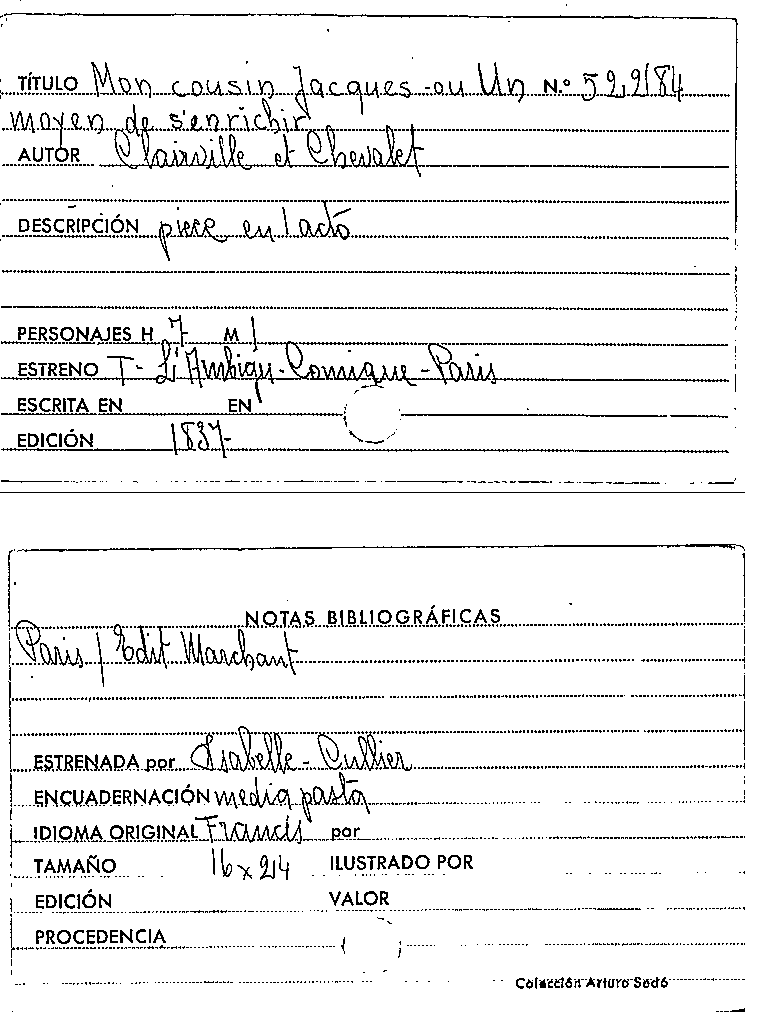 TÍTULO Mon cousin Jacques ou Un N.º 52284
moyen de s'enrichir
AUTOR Clairville et Chevalet
DESCRIPCIÓN piece en 1 acto
PERSONAJES H 7 M 1
ESTRENO T- L'Ambigu-Comique-Paris
ESCRITA EN EN
EDICIÓN 1837-
NOTAS BIBLIOGRÁFICAS
Paris / Edit Marchant
ESTRENADA por Isabelle - Cullier
ENCUADERNACIÓN media pasta
IDIOMA ORIGINAL Francés por
TAMAÑO 16 x 24 ILUSTRADO POR
EDICIÓN VALOR
PROCEDENCIA
Colección Arturo Sedó